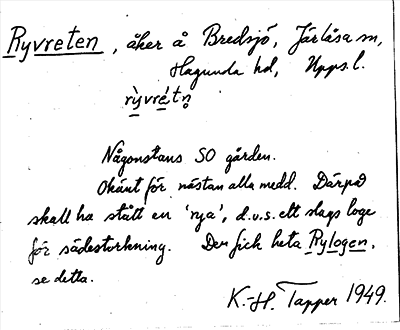 Ryvreten, åker å Bredsjö, Järlåsa sn,
Hagunda hd, Upps. l.
rỳvré̀tṇ
Någonstans SO gården.
Okänt för nästan alla medd. Därpå
skall ha stått en 'rya', d.v.s. ett slags loge
för sädestorkning. Den fick heta Rylogen,
se detta.
K.-H. Tapper 1949.